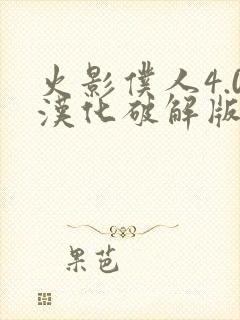 火影僕人4.0
漢化破解版
果芭